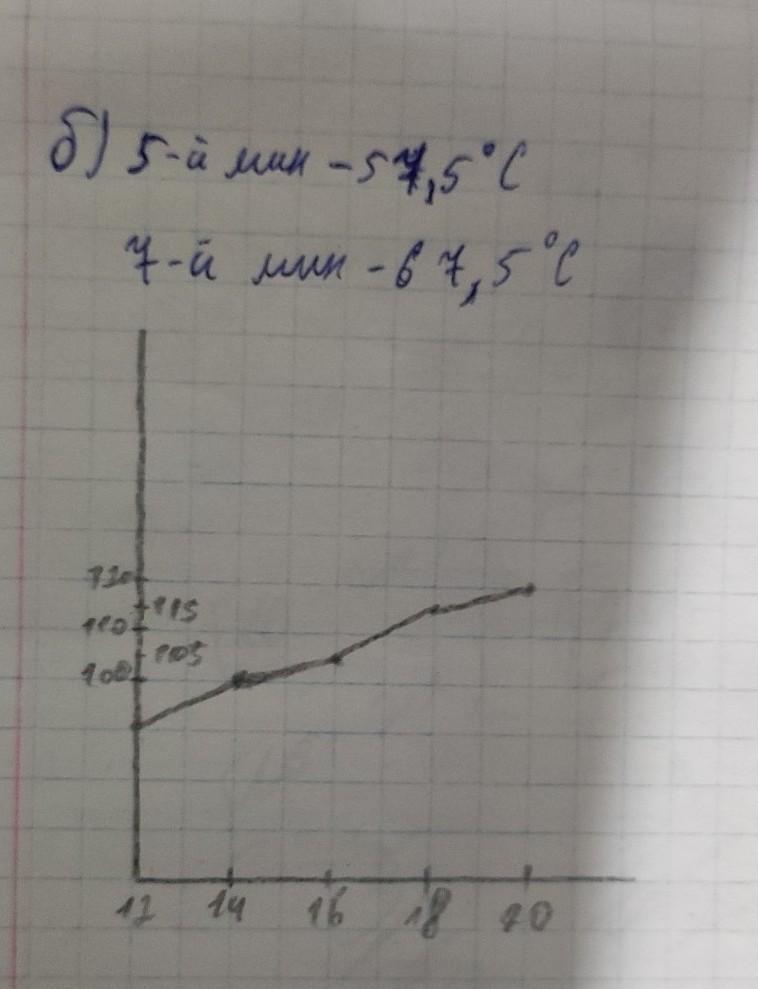 б) 5-й мин - 57,5°C
7-й мин - 67,5°C
120
115
110
105
100
12 14 16 18 20